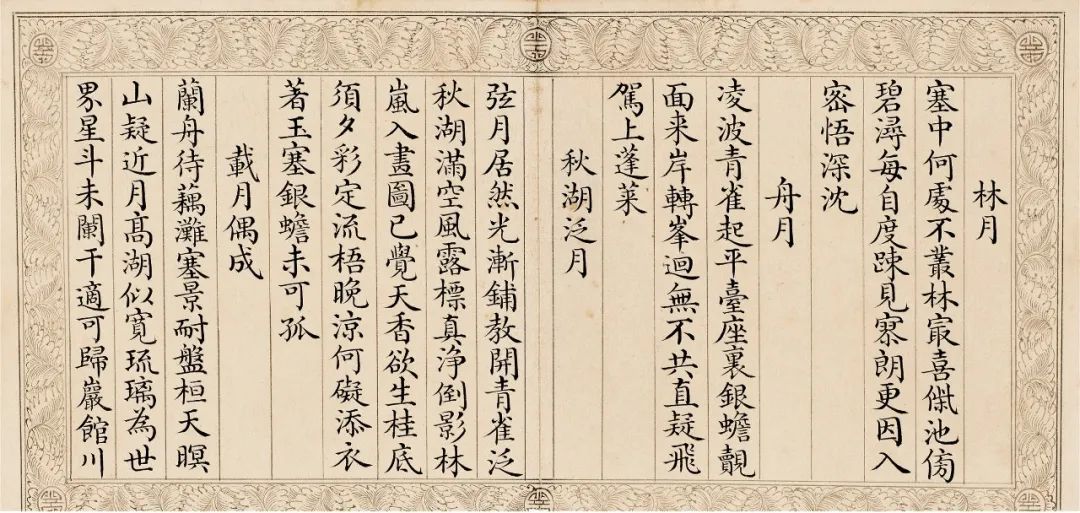 林月
塞中何處不叢林冣喜傑池傍
碧潯每自度踈見寥朗更因入
宻悟深沈
舟月
凌波青雀起平臺座裏銀蟾覿
面来岸轉峯迴無不共直疑飛
駕上蓬莱
秋湖泛月
弦月居然光漸鋪教開青雀泛
秋湖滿空風露標真淨倒影林
嵐入畫圖已覺天香欲生桂底
須夕彩定流梧晚涼何礙添衣
著玉塞銀蟾未可孤
載月偶成
蘭舟待藕灘塞景耐盤桓天暝
山疑近月髙湖似寛琉璃為世
界星斗未闌干適可歸巖館川